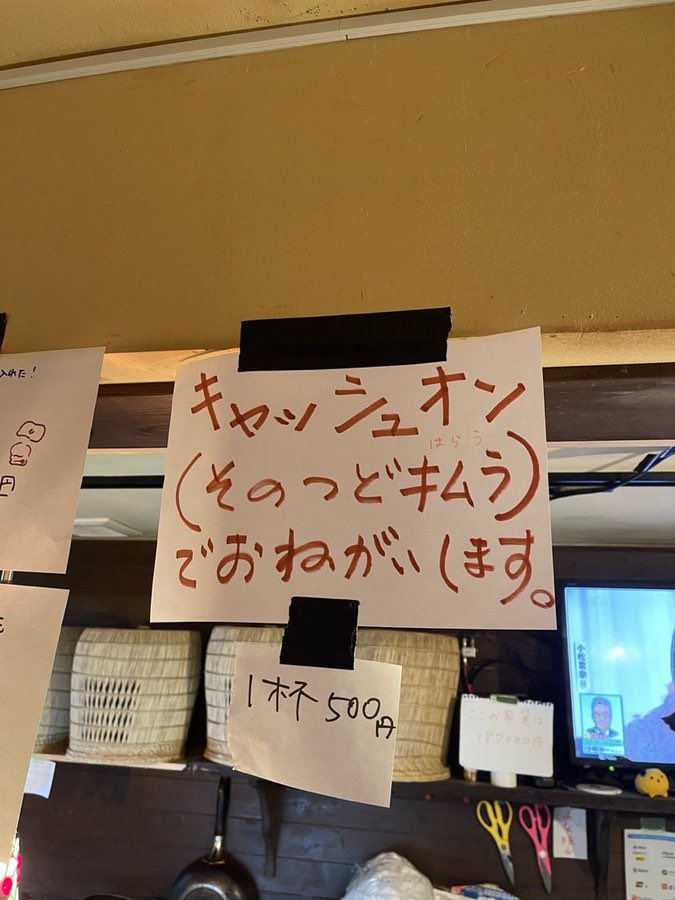 入れた!
円
キャッシュオン
はらう
(そのつどキムラ)
でおねがいします。
1杯500円
ここの家賃は
187000円